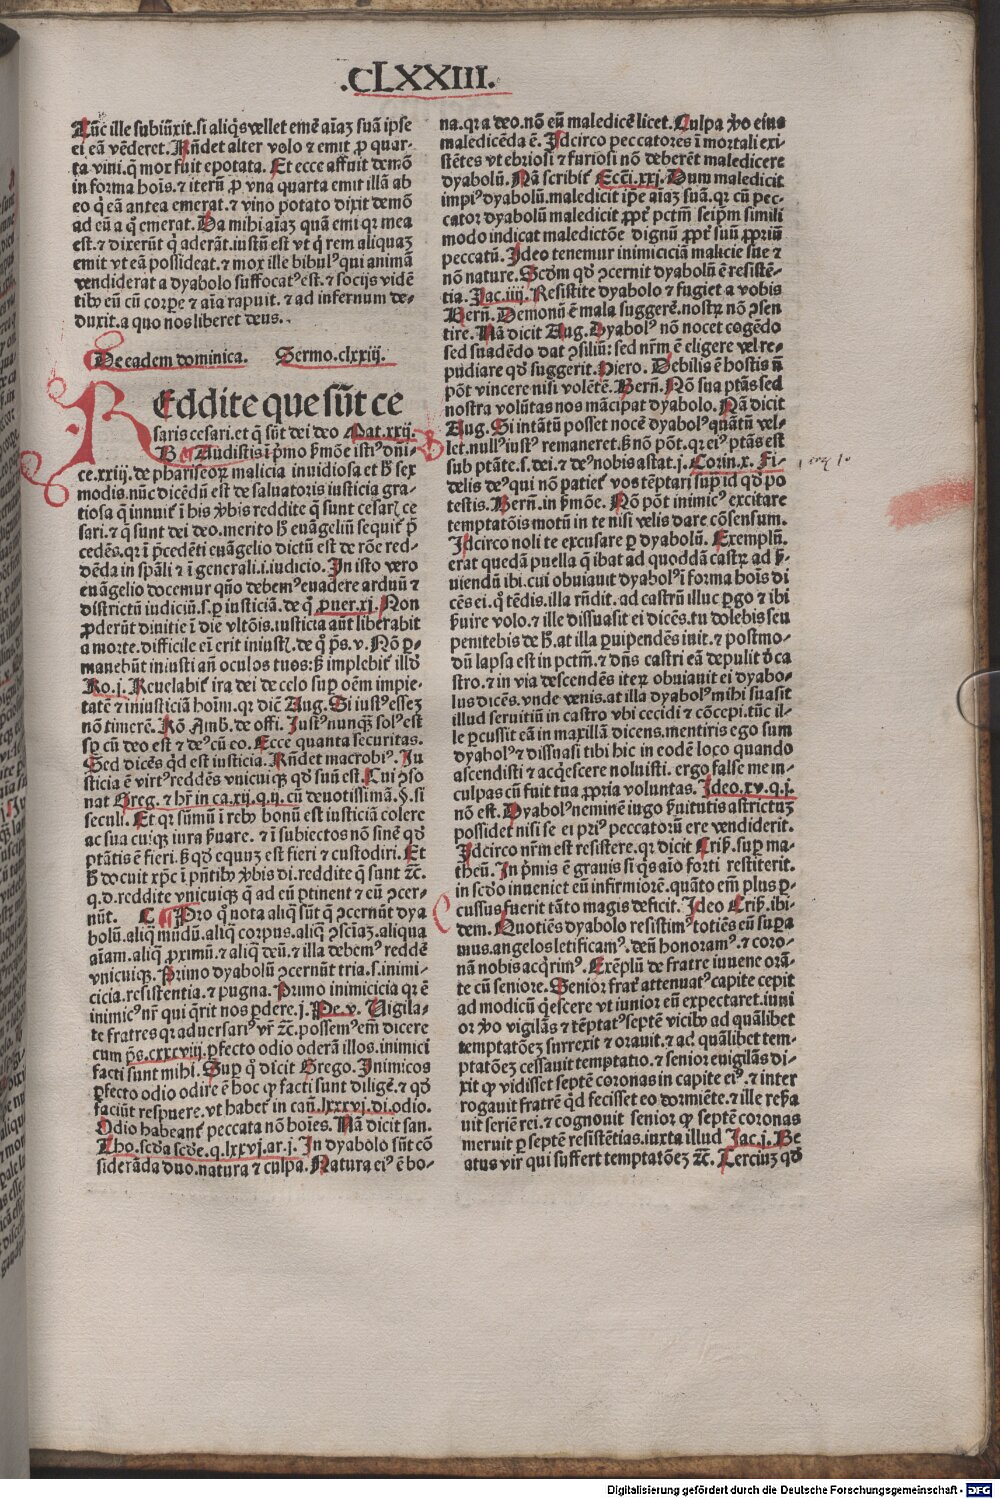 .CLXXIII.
Tũc ille subiũxit.si aliq̃s vellet emẽ aĩaꝫ suã ipse
ei eã vẽderet.Rñdet alter volo ⁊ emit ꝓ quar-
ta vini.q̃ mox fuit epotata. Et ecce affuit demõ
in forma hoĩs.⁊ iterũ ꝓ vna quarta emit illã ab
eo q̇ eã antea emerat.⁊ vino potato dixit demõ
ad eũ a q̇ emerat. Da mihi aĩaꝫ quã emi qꝛ mea
est.⁊ dixerũt q̇ aderãt.iustũ est vt q̇ rem aliquaꝫ
emit vt eã possideat.⁊ mox ille bibulꝰ qui animã
vendiderat a dyabolo suffocatꝰ est.⁊ socijs vidẽ
tibꝰ eũ cũ corpꝑe ⁊ aĩa rapuit.⁊ ad infernum de-
duxit.a quo nos liberet deus.
De eadem dominica. Sermo.clxxiij.
REddite que sũt ce
saris cesari.et q̃ sũt dei deo Mat.xxij.
Audistis ĩ p̃mo ẜmõe istiꝰ dñi-
ce.xxiij.de phariseoꝝ malicia inuidiosa et ꝉ sex
modis.nũc dicẽdũ est de saluatoris iusticia gra-
tiosa q̃ innuit̃ ĩ his ꝟbis reddite q̃ sunt cesaꝝ ce
sari.⁊ q̃ sunt dei deo.merito ħ euãgeliũ sequit̃ p̃
cedẽs.qꝛ ĩ p̃cedẽti euãgelio dictũ est de rõe red-
dẽda in spãli ⁊ ĩ generali.i.iudicio. In isto vero
euãgelio docemur quõ debemꝰ euadere arduũ ⁊
districtũ iudiciũ.s.ꝑ iusticiã.de q̃ ꝓuer.xj. Non
ꝓderũt diuitie ĩ die vltõis.iusticia aũt liberabit
a morte.difficile eĩ erit iniustꝭ.de q̇ p̃s.v. Nõ ꝑ-
manebũt iniusti añ oculos tuos:ẜ implebit̃ illð
Ro.j. Reuelabit̃ ira dei de celo suꝑ oẽm impie-
tatẽ ⁊ iniusticiã hoĩm.qꝛ diẽ Aug. Si iustꝰ esseꝫ
nõ timerẽ. Rõ Amb.de offi. Iustꝰ nunqꝫ̃ solꝰ est
sp̃ cũ deo est ⁊ deꝰ cũ eo. Ecce quanta securitas.
Sed dicẽs q̇d est iusticia. Rñdet macrobiꝰ. Ju
sticia ẽ virtꝰ reddẽs vnicuiqꝫ qð suũ est. Cui ꝯso
nat Greg.⁊ hr̃ in ca.xij.q.ij.cũ deuotissimã.§.si
seculi. Et qꝛ sũmũ ĩ rebꝰ bonũ est iusticiã colere
ac sua cuiqꝫ iura ẜuare.⁊ ĩ subiectos nõ sinẽ qð
ptãtis ẽ fieri.ẜ qð equuꝫ est fieri ⁊ custodiri. Et
ħ docuit xp̃c ĩ pñtibꝰ ꝟbis di.reddite q̃ sunt ⁊c̃.
q.d.reddite vnicuiqꝫ q̃ ad eũ ꝑtinent ⁊ cũ ꝯcer-
nũt. C Pro q̇ nota aliq̃ sũt q̃ ꝯcernũt dya
bolũ.aliq̃ mũdũ.aliq̃ corpus.aliq̃ ꝯsciaꝫ.aliqua
aĩam.aliq̃ ꝓximũ.⁊ aliq̃ deũ.⁊ illa debemꝰ reddẽ
vnicuiqꝫ. Primo dyabolũ ꝯcernũt tria.s.inimi-
cicia.resistentia.⁊ pugna. Primo inimicicia qꝛ ẽ
inimicꝰ nr̃ qui q̃rit nos ꝑdere.j. Pe.v. Uigila-
te fratres qꝛ aduersariꝰ vr̃ ⁊c̃.possemꝰ eĩ dicere
cum p̃s.cxxxviij.ꝑfecto odio oderã illos.inimici
facti sunt mihi. Suꝑ q̇ dicit Grego. Inimicos
ꝑfecto odio odire ẽ hoc ꝙ facti sunt diligẽ.⁊ qð
faciũt respuere.vt habet̃ in cañ.lxxxvj.di.odio.
Odio habeant̃ peccata nõ hoĩes. Nã dicit san.
Tho.scða scðe.q.lxxvj.ar.j. In dyabolo sũt cõ
siderãda duo.natura ⁊ culpa. Natura eiꝰ ẽ bo-
na.qꝛ a deo.nõ eũ maledicẽ licet. Culpa ꝟo eius
maledicẽda ẽ. Idcirco peccatores ĩ mortali exi-
stẽtes vt ebriosi ⁊ furiosi nõ deberẽt maledicere
dyabolũ. Nã scribit̃ Ecci.xxj. Dum maledicit
impiꝰ dyabolũ.maledicit ip̃e aĩaꝫ suã.qꝛ cũ pec-
cator dyabolũ maledicit ꝓpt̃ pctm̃ seip̃m simili
modo indicat maledictõe dignũ ꝓpt̃ suũ ꝓpriũ
peccatũ. Ideo tenemur inimiciciã malicie sue ⁊
nõ nature. Scðm qð ꝯcernit dyabolũ ẽ resistẽ-
tia. Jac.iiij. Resistite dyabolo ⁊ fugiet a vobis
Berñ. Demonũ ẽ mala suggerẽ.nostꝝ nõ ꝯsen
tire. Nã dicit Aug. Dyabolꝰ nõ nocet cogẽdo
sed suadẽdo dat ꝯsiliũ:sed nr̃m ẽ eligere vel re-
pudiare qð suggerit. Hiero. Debilis ẽ hostis q̃
põt vincere nisi volẽtẽ. Berñ. Nõ sua ptãs sed
nostra volũtas nos mãcipat dyabolo. Nã dicit
Aug. Si intãtũ posset nocẽ dyabolꝰ quãtũ vel-
let.nullꝰ iustꝰ remaneret.ẜ nõ põt.qꝛ eiꝰ ptãs est
sub ptãte.s.dei.⁊ deꝰ nobis astat.j. Corin.x. Fi-
delis deꝰ qui nõ patiet̃ vos tẽptari suꝑ id qð po
testis. Berñ.in ẜmõe. Nõ põt inimicꝰ excitare
temptatõis motũ in te nisi velis dare cõsensum.
Idcirco noli te excusare ꝑ dyabolũ. Exemplũ.
erat quedã puella q̃ ibat ad quoddã castꝝ ad ẜ-
uiendũ ibi.cui obuiauit dyabolꝰ ĩ forma hoĩs di
cẽs ei.q̇ tẽdis.illa rñdit.ad castrũ illuc ꝑgo ⁊ ibi
ẜuire volo.⁊ ille dissuasit ei dicẽs.tu dolebis seu
penitebis de ħ.at illa ꝑuipendẽs iuit.⁊ postmo-
dũ lapsa est in pctm̃.⁊ dñs castri eã depulit ð ca
stro.⁊ in via descendẽs iteꝝ obuiauit ei dyabo-
lus dicẽs.vnde venis.at illa dyabolꝰ mihi suasit
illud seruitiũ in castro vbi cecidi ⁊ cõcepi.tũc il-
le ꝑcussit eã in maxillã dicens.mentiris ego sum
dyabolꝰ ⁊ dissuasi tibi hic in eodẽ loco quando
ascendisti ⁊ acq̃escere noluisti. ergo false me in-
culpas cũ fuit tua ꝓpria voluntas. Ideo.xv.q.j.
nõ est. Dyabolꝰ neminẽ iugo ẜuitutis astrictuꝫ
possidet nisi se ei priꝰ peccatorũ ere vendiderit.
Idcirco nr̃m est resistere.qꝛ dicit Criẜ.suꝑ ma-
theũ. In p̃mis ẽ grauis si q̇s aio forti restiterit.
in scðo inueniet eũ infirmiorẽ.quãto em̃ plus ꝑ-
cussus fuerit tãto magis deficit. Ideo Criẜ.ibi-
dem. Quotiẽs dyabolo resistimꝰ totiẽs cũ suꝑa
mus.angelos letificamꝰ.deũ honoramꝰ.⁊ coro-
nãnobis acq̃rimꝰ. Exẽplũ de fratre iuuene orã-
te cũ seniore. Senior frat̃ attenuatꝰ capite cepit
ad modicũ q̇escere vt iunior eũ expectaret.iuni
or ꝟo vigilãs ⁊ tẽptatꝰ septẽ vicibꝰ ad quãlibet
temptatõeꝫ surrexit ⁊ orauit.⁊ ad quãlibet tem-
ptatõeꝫ cessauit temptatio.⁊ senior euigilãs di-
xit ꝙ vidisset septẽ coronas in capite eiꝰ.⁊ inter
rogauit fratrẽ q̇d fecisset eo dormiẽte.⁊ ille refeẜa
uit seriẽ rei.⁊ cognouit senior ꝙ septẽ coronas
meruit ꝑ septẽ resistẽtias.iuxta illud Jac.j. Be
atus vir qui suffert temptatõeꝫ ⁊c̃. Terciuꝫ qð
Digitalisierung gefördert durch die Deutsche Forschungsgemeinschaft - DFG